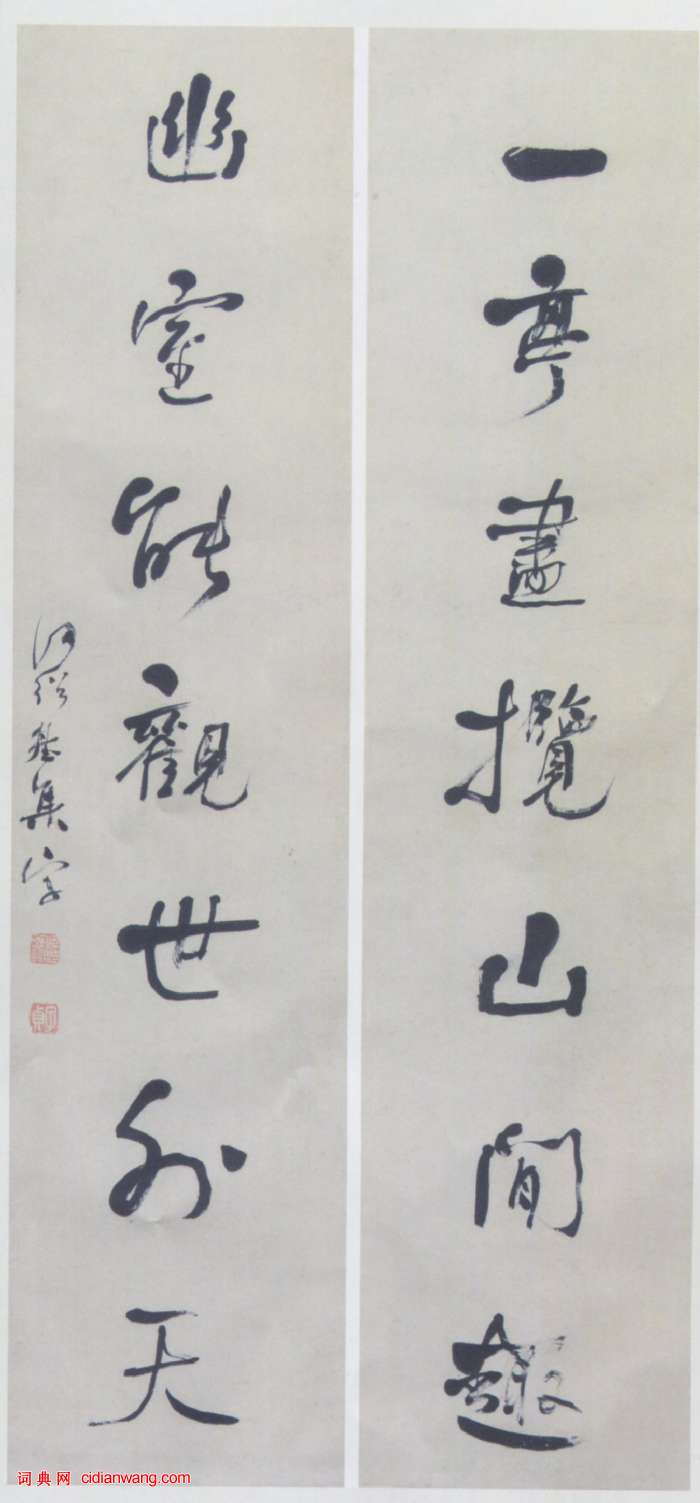 一亭盡攬山間趣
幽室能觀世外天
何紹基集字
词典网 cidianwang.com